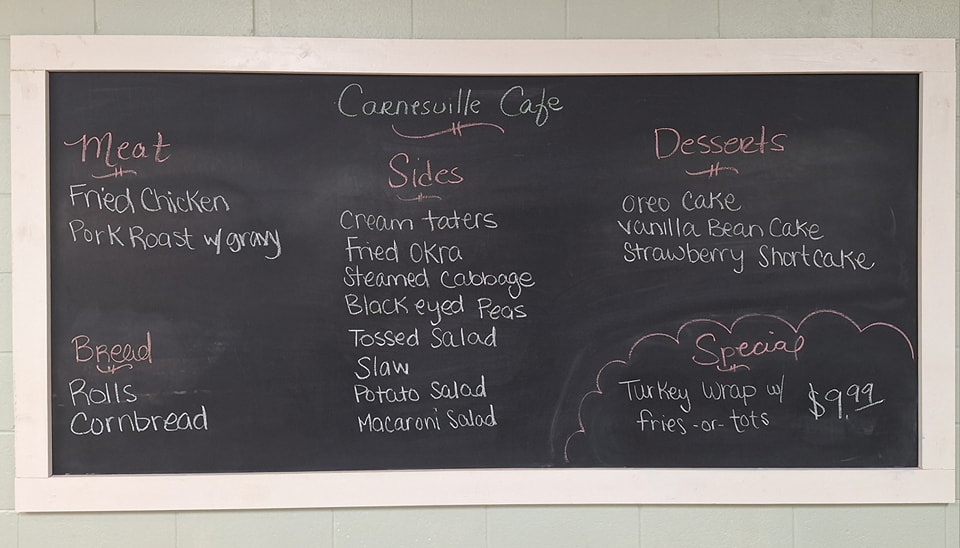 Carnesville Cafe
Meat
Fried Chicken
Pork Roast w/gravy
Bread
Rolls
Cornbread
Sides
Cream taters
Fried Okra
Steamed Cabbage
Black eyed Peas
Tossed Salad
Slaw
Potato Salad
Macaroni Salad
Desserts
oreo cake
vanilla Bean Cake
Strawberry Shortcake
Special
Turkey wrap w/
fries -or- tots
$9.99